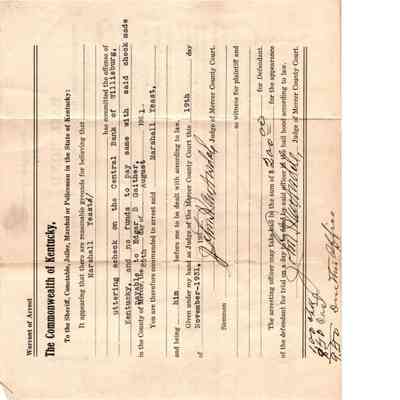 Warrant of Arrest
The Commonwealth of Kentucky,
To the Sheriff, Constable, Jailer, Marshal or Policeman in the State of Kentucky:
It appearing that there are reasonable grounds for believing that
Marshall Yeast
has committed the offense of
uttering acheck on the Central Bank of Willisburg,
Kentucky, and no funds to pay same with said check made
payable to Edgar D Gaither,
in the County of Mercer the 25th day of August 1931.
You are therefore commanded to arrest said Marshall Yeast,
and bring him before me to be dealt with according to law.
Given under my hand as Judge of the Mercer County Court this 19th day
of November-1931, 19
Judge of Mercer County Court.
Summon
as witness for plaintiff and
for Defendant.
The arresting officer may take bail in the sum of $ 200.00 for the appearance
of the defendant for trial on a day to be fixed by said officer in the bail bond according to law.
Judge of Mercer County Court.